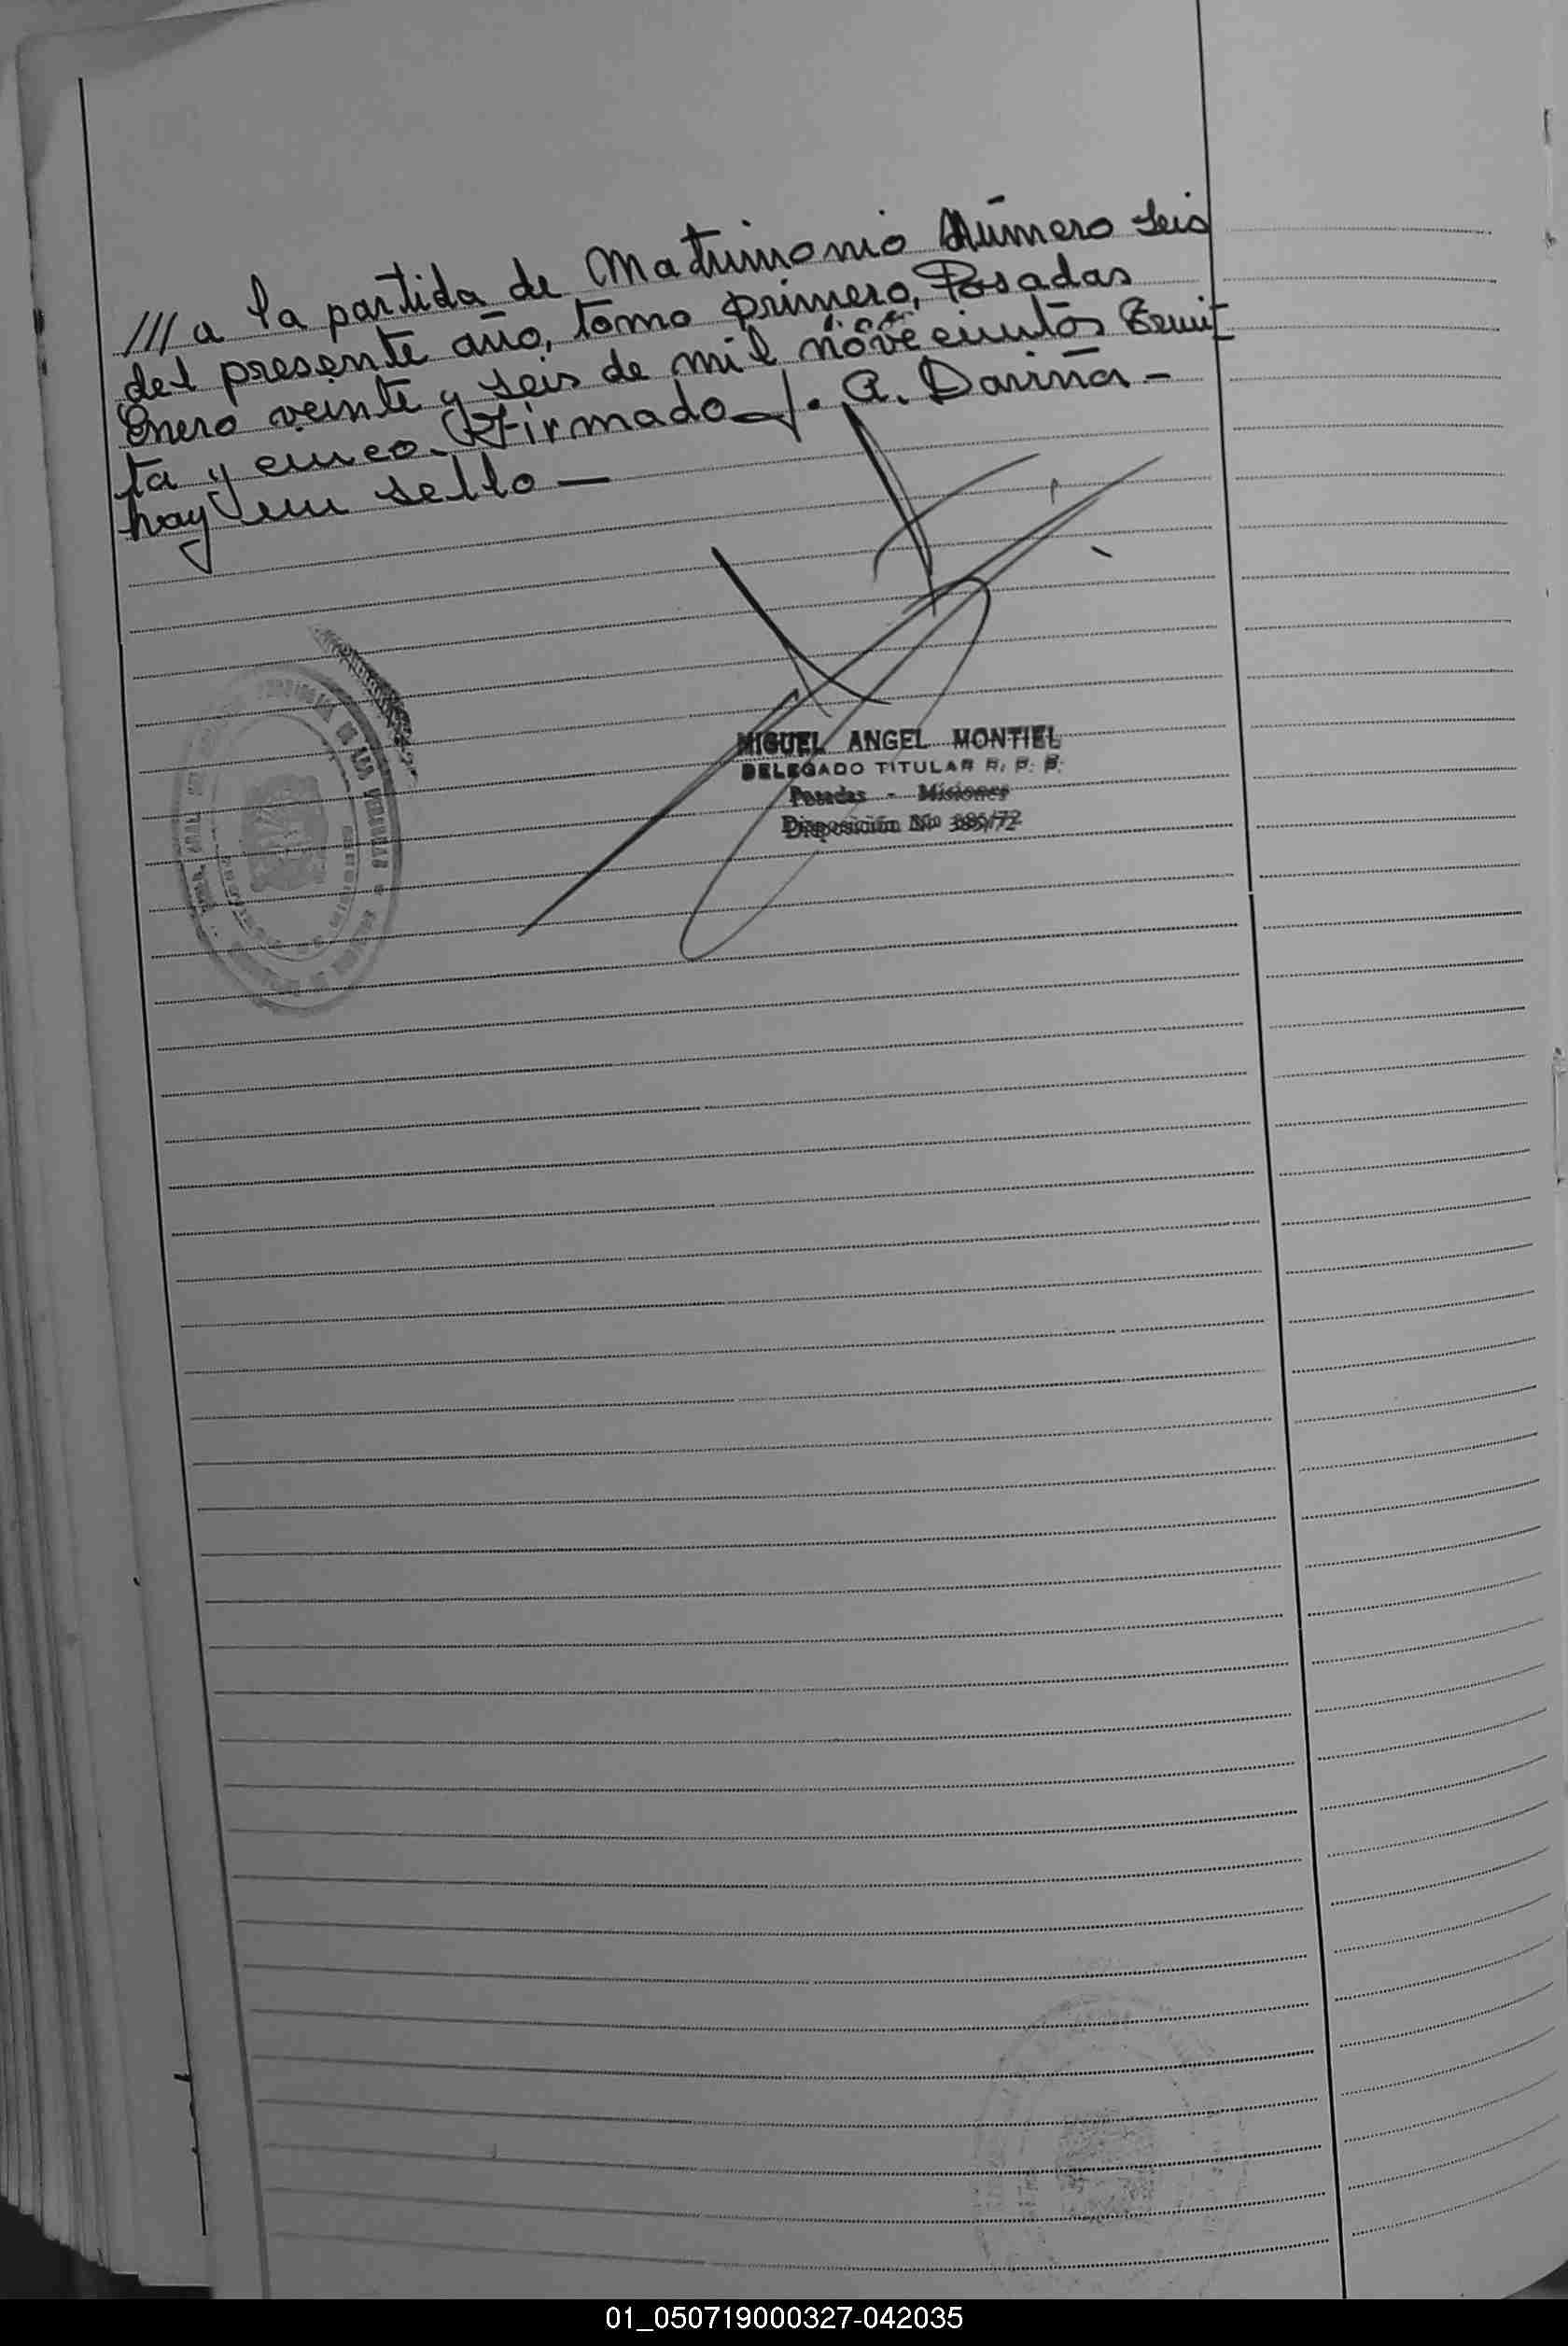 /// a la partida de Matrimonio Número seis
del presente año, tomo primero, Posadas
Enero veinte y seis de mil novecientos Trein
ta y cinco. Firmado J. A. Dariña -
hay un sello -
MIGUEL ANGEL MONTIEL
DELEGADO TITULAR R. P. P.
Posadas - Misiones
Disposición Nº 385/72
01_050719000327-042035